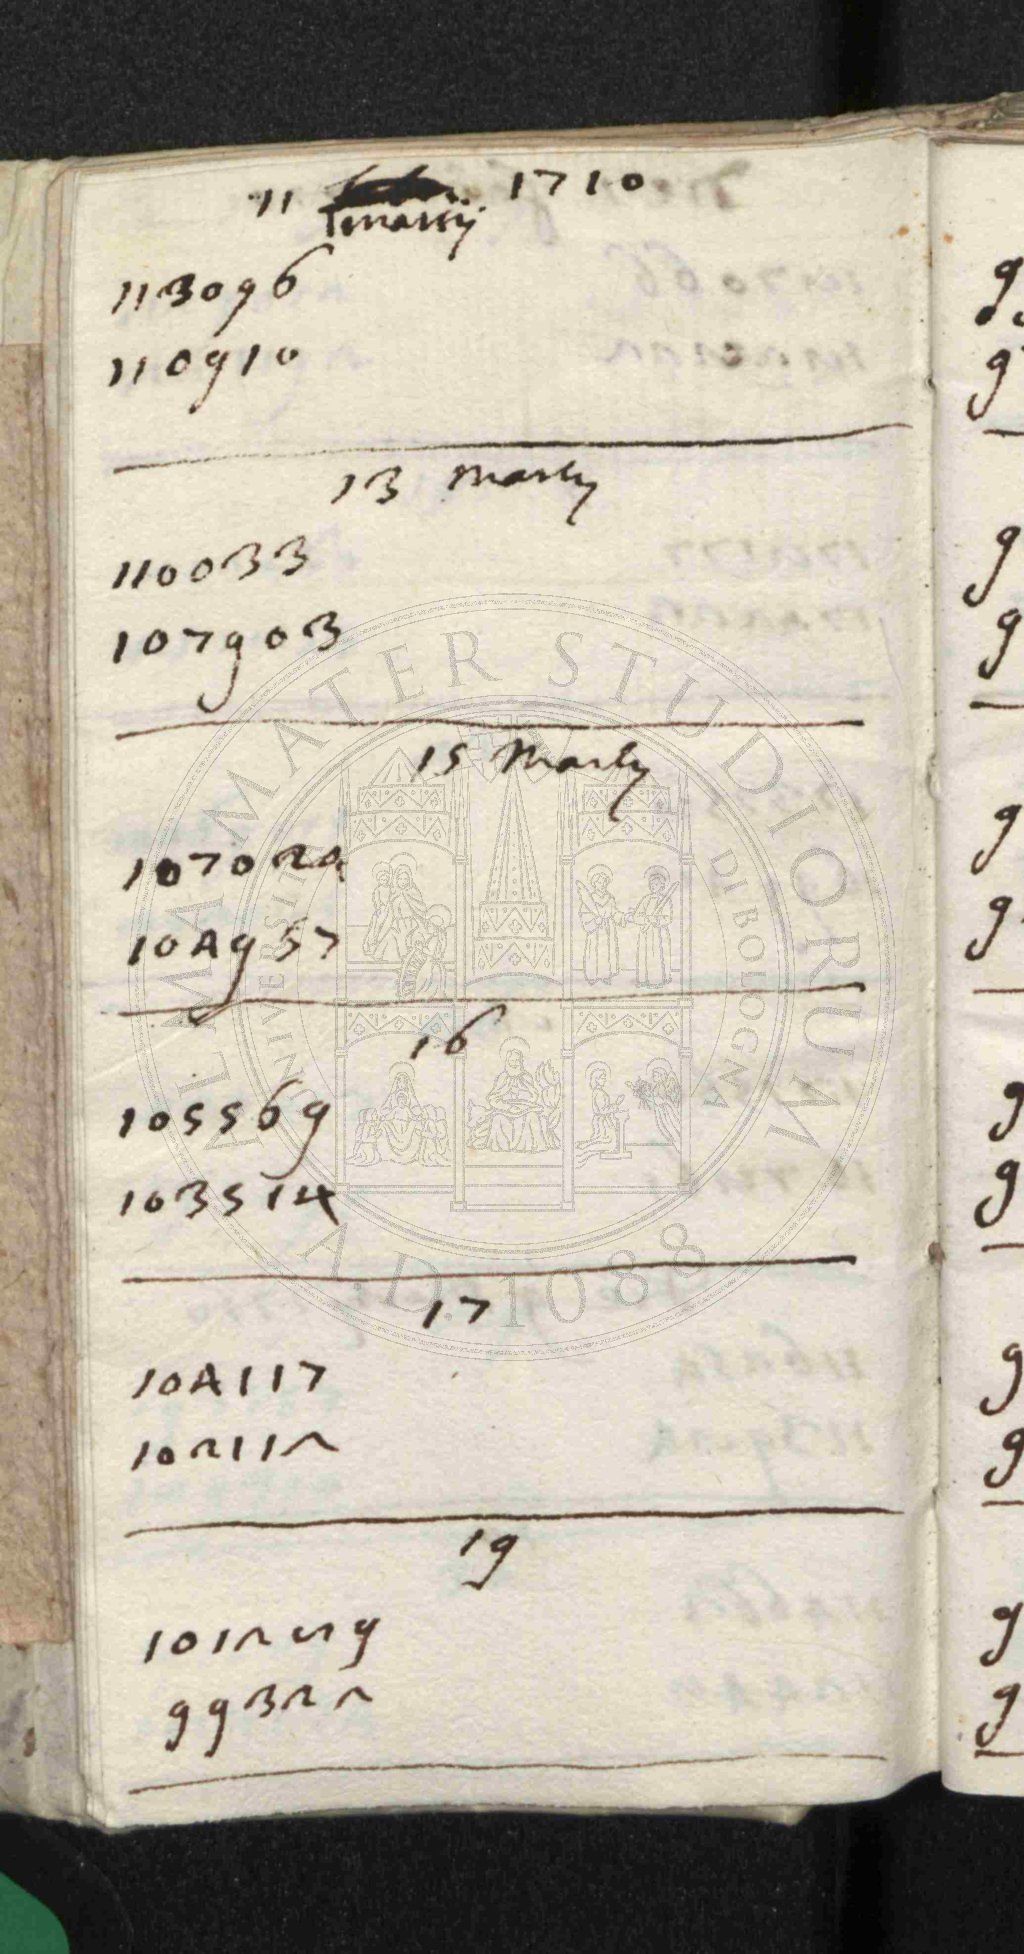 11 1710
martij
113096
110910
13 Martij
110033
107903
15 Martij
107024
104957
16
105569
103514
17
104117
102112
19
101229
99322
ALMA MATER STUDIORUM
UNIVERSITÀ DI BOLOGNA
A.D. 1088